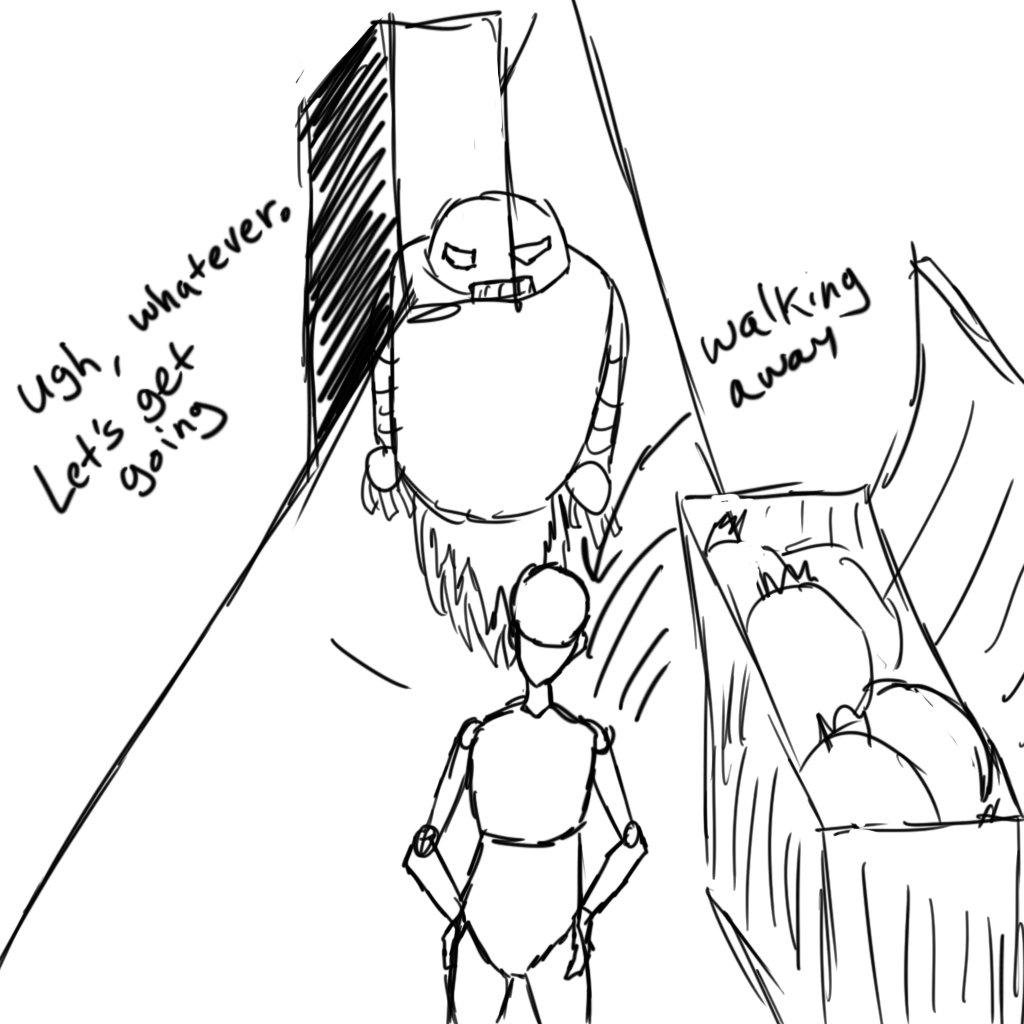 Ugh, whatever.
Let's get
going
walking
away